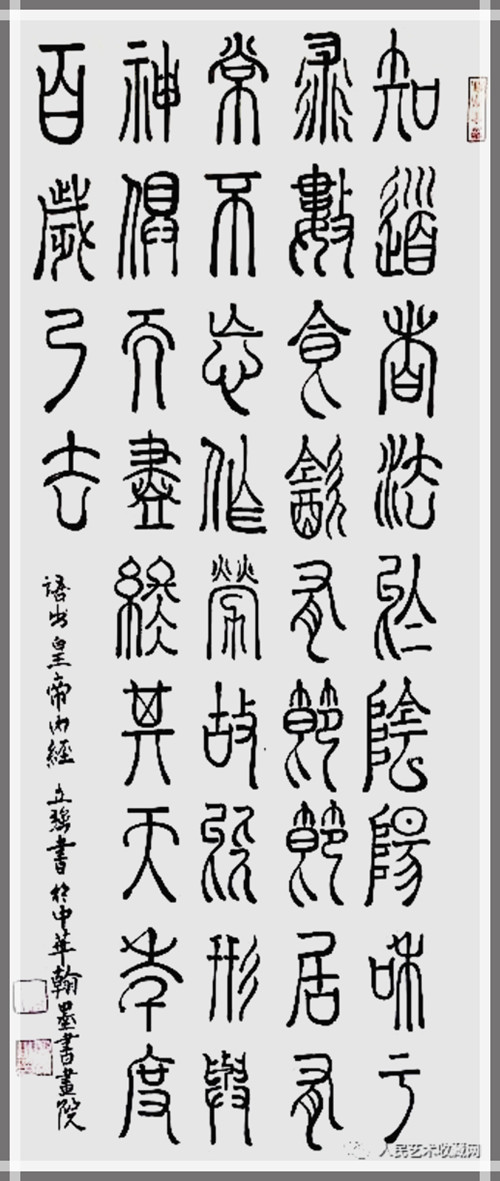 知道者法於陰陽和于
術數食飲有節節居有
常不忘作勞故能形與
神俱而盡終其天年度
百歲乃去
語出皇帝内經 立書於中華翰墨書畫院
人民艺术收藏网